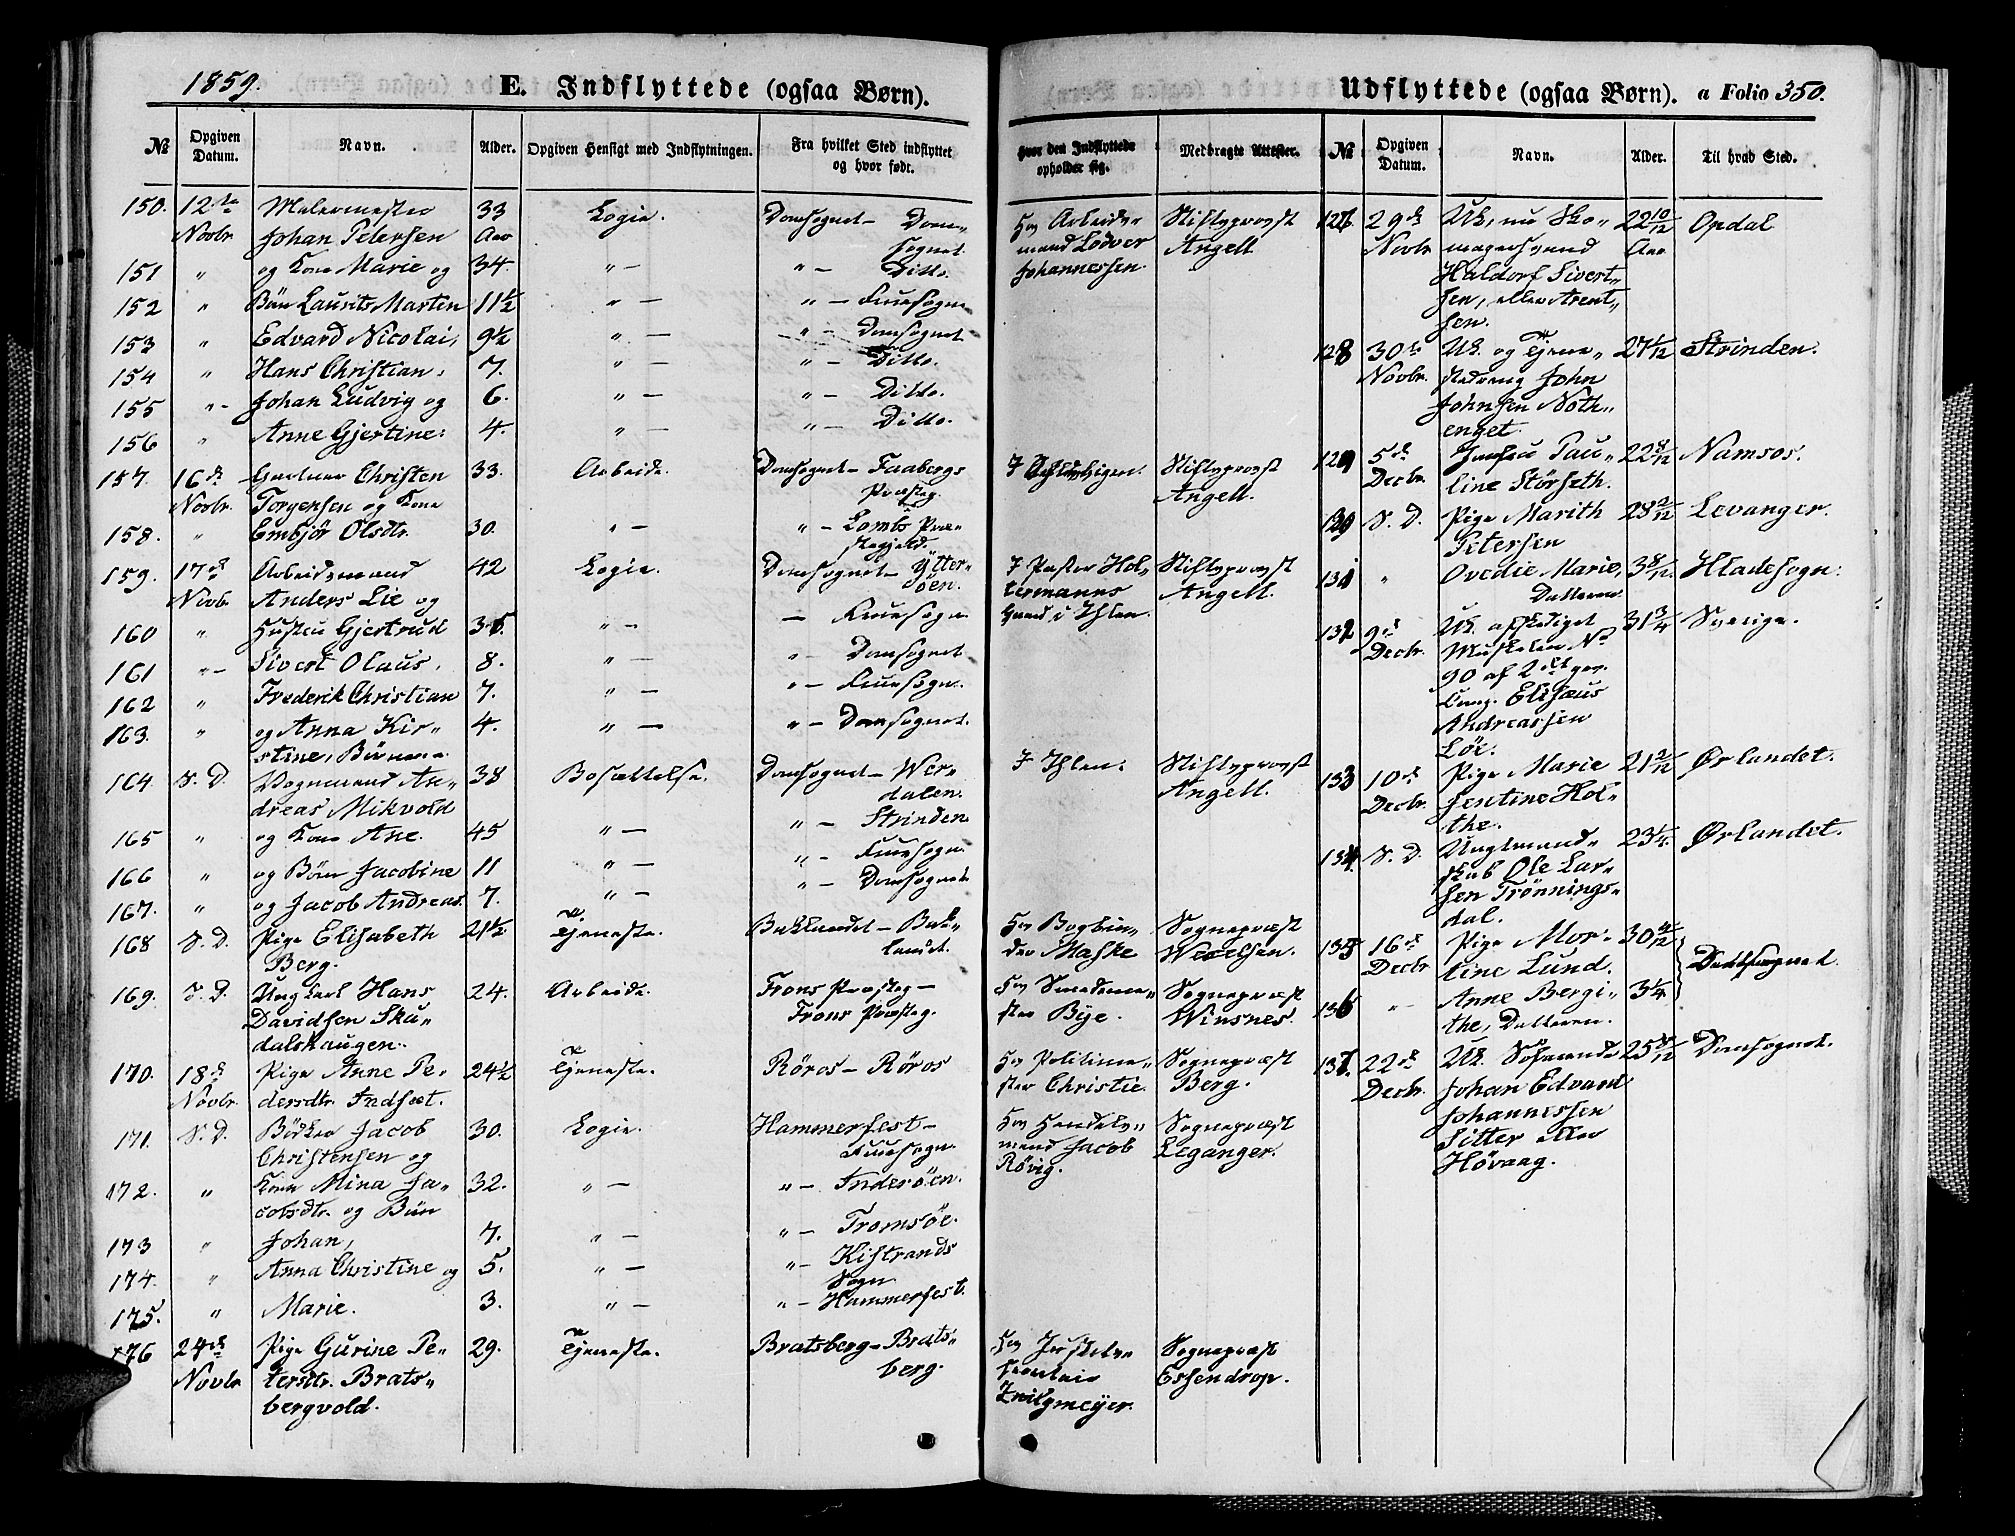 1859.
E. Indflyttede (ogsaa Børn).
№ Opgiven Datum. Navn. Alder. Opgiven Hensigt med Indflytningen. Fra hvilket Sted indflyttet og hvor født.
150. 12te Novbr Malermester Johan Petersen 33 Aar Logie. Domsognet – Domsognet
151 " og Kone Marie og 34. " – " – Ditto.
152 " Børn Laurits Martin 11½ " – " – Fruesogn
153 " Edvard Nicolai, 9½ " – " – Domsognet
154 " Hans Christian, 7. " – " – Ditto.
155 " – Johan Ludvig og 6. " – " – Ditto.
156 " Anne Gjertine. 4. " – " – Ditto.
157. 16de Novbr. Christen Torgersen og Kone 33. Arbeide. Domsognet – Faabergs Præsteg.
158. " Embjør Olsdtr. 30. " – " – Lomts Præstegjeld.
159. 17de Novbr Arbeidsmand Anders Lie og 42 Logie. Domsognet – Ytterøen.
160 " Hustru Gjertrud 35. " – – Fruesogn
161 " – Sivert Olaus, 8. " – " – Domsognet
162 " Frederik Christian 7. " – " – Fruesogn.
163. " og Anna Kirstine, Børnene 4. " – " – Domsognet.
164. S. D. Vognmand Andreas Mikvold 38 Bosættelse. Domsognet – Werdalen.
165 " og Kone Ane. 45 " – " – Strinden
166 " og Børn Jacobine 11 " – " – Fruesogn
167. " og Jacob Andreas. 7. " – " – Domsognet
168 S. D. Pige Elisabeth Berg. 21½ Tjeneste. Baklandet – Baklandet.
169. S. D. Ungkarl Hans Davidsen Skudalshaugen. 24. Arbeide. Frons Præsteg – Frons Præsteg.
170. 18de Novbr. Pige Anne Pedersdtr. Indset. 24½ Tjeneste. Röros – Röros
171. S. D. Bödker Jacob Christensen og 30. Logie. Hammerfest – Fruesogn.
172. " Kone Mina Jacobsdtr. og Børn 32. " – " – Inderöen.
173 " Johan, 7. " – " – Tromsöe.
174. " Anna Christine og 5. " – " – Kistrands Sogn
175. " Marie. 3. " – " – Hammerfest.
176 24de Novbr Pige Gurine Petersdtr. Bratsbergvold. 29. Tjeneste. Bratsberg – Bratsberg.
Udflyttede (ogsaa Børn). a Folio 350.
Hvor den Indflyttede opholder sig. Medbragte Attester. № Opgiven Datum. Navn. Alder. Til hvad Sted.
Hos Arbeidsmand Lodver Johannessen. Stiftsprovst Angell
Stiftsprovst Angell.
I Pastor Holtermanns Gaard i Ihlen. Stiftsprovst Angell.
I Ihlen. Stiftsprovst Angell.
Hos Bogbinder Maske Sognepræst Wexelsen.
Hos Smedemester Bye. Sognepræst Winsnes.
Hos Politimester Christie. Sognepræst Berg.
Hos Handelsmand Jacob Rövig. Sognepræst Leganger.
Hos Sognepræst Essendrop.
127. 29de Novbr Uk, nu Skomagersvend Haldorf Sivertsen, eller Arentsen. 22 10/12 Aar Opdal
128 30te Novbr. Uk. og Tjenestedreng John Johnsen Nothenget. 27 1/12 Strinden.
129 5de Decbr. Jomfru Pauline Störseth. 22 8/12 Namsos.
130 S. D. Pige Marith Petersen 28 2/12 Levanger.
131 " Ovedie Marie, Datteren 3 8/12 Hladesogn.
132 9de Decbr. Uk. afskediget Musketer No 90 af 2det Elisæus Andreassen Löe. 31 3/4 Sverige.
133 10de Decbr. Pige Marie Jentine Holthe. 21 2/12 Ørlandet.
134. S. D. Ungtmandskab Ole Larsen Trönningsdal. 23 1/4. Ørlandet.
135 16de Decbr Pige Mortine Lund. 30 4/12
136 " – Anne Bergithe, Datteren. 3 1/4
137. 22de Decbr. Uk. Johan Edvard Johannessen Sitter eller Hövaag. Domsognet.